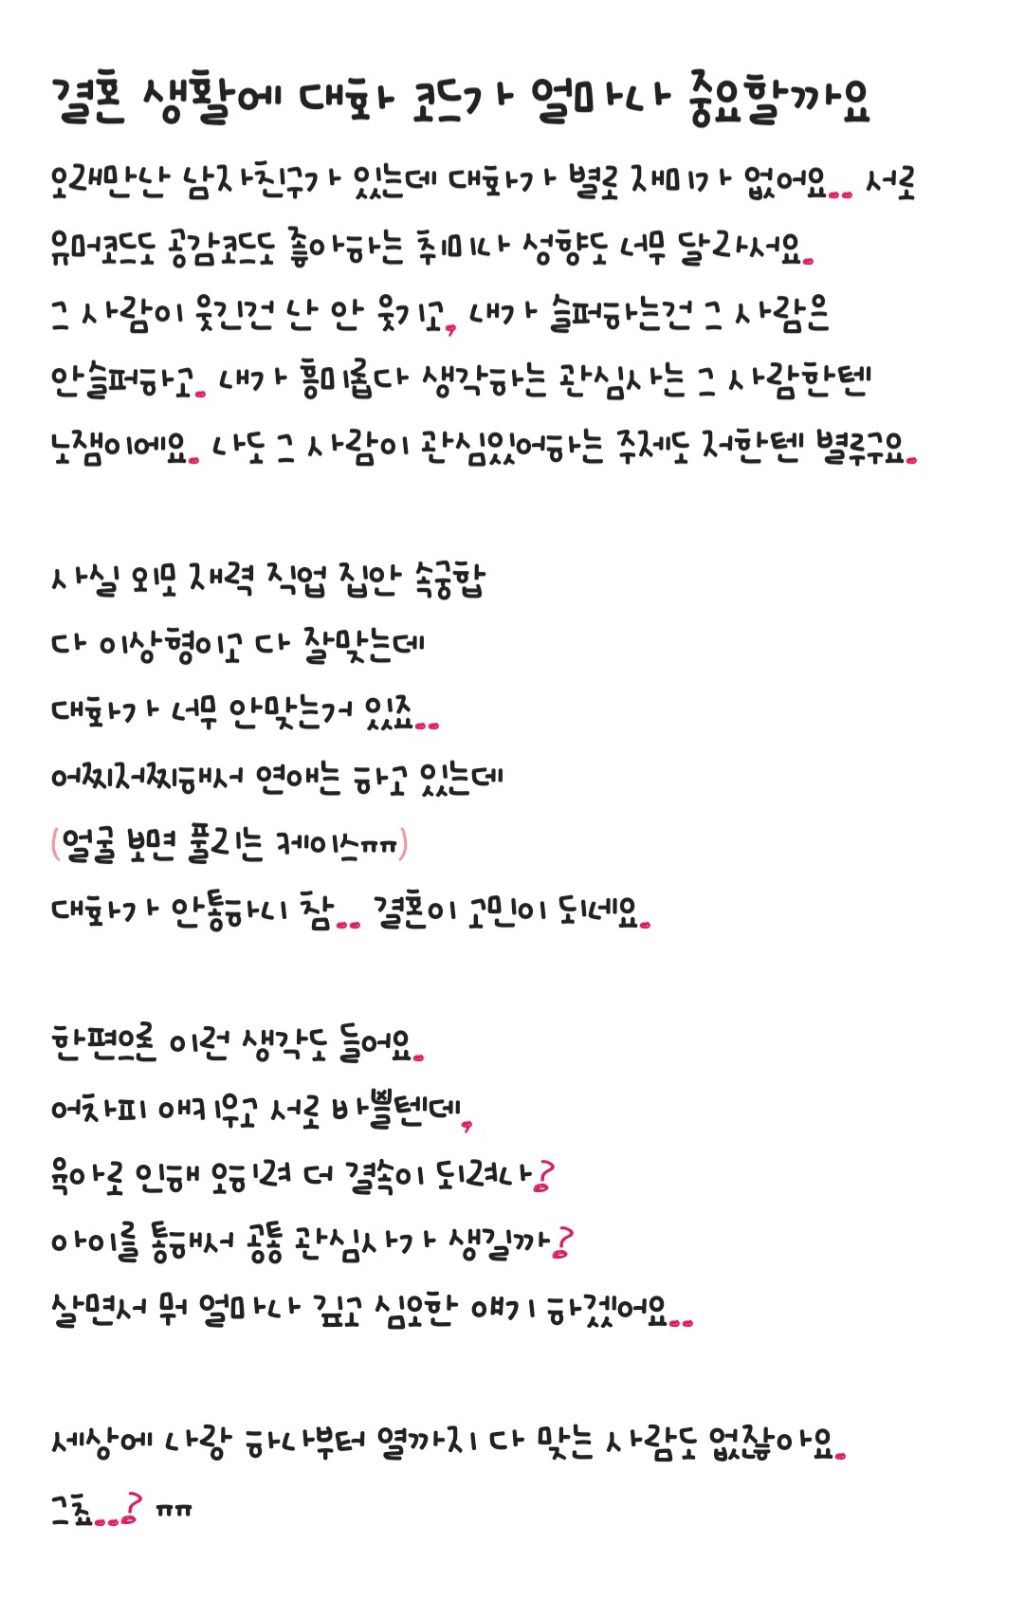 결혼 생활에 대화 코드가 얼마나 중요할까요
오래만난 남자친구가 있는데 대화가 별로 재미가 없어요.. 서로
유머코드도 공감코드도 좋아하는 취미나 성향도 너무 달라서요.
그 사람이 웃긴건 난 안 웃기고, 내가 슬퍼하는건 그 사람은
안슬퍼하고. 내가 흥미롭다 생각하는 관심사는 그 사람한텐
노잼이에요. 나도 그 사람이 관심있어하는 주제도 저한텐 별루구요.
사실 외모 재력 직업 집안 속궁합
다 이상형이고 다 잘맞는데
대화가 너무 안맞는거 있죠..
어찌저찌해서 연애는 하고 있는데
(얼굴 보면 풀리는 케이스ㅠㅠ)
대화가 안통하니 참.. 결혼이 고민이 되네요.
한편으론 이런 생각도 들어요.
어차피 애키우고 서로 바쁠텐데,
육아로 인해 오히려 더 결속이 되려나?
아이를 통해서 공통 관심사가 생길까?
살면서 뭐 얼마나 깊고 심오한 얘기 하겠어요..
세상에 나랑 하나부터 열까지 다 맞는 사람도 없잖아요.
그쵸..? ㅠㅠ